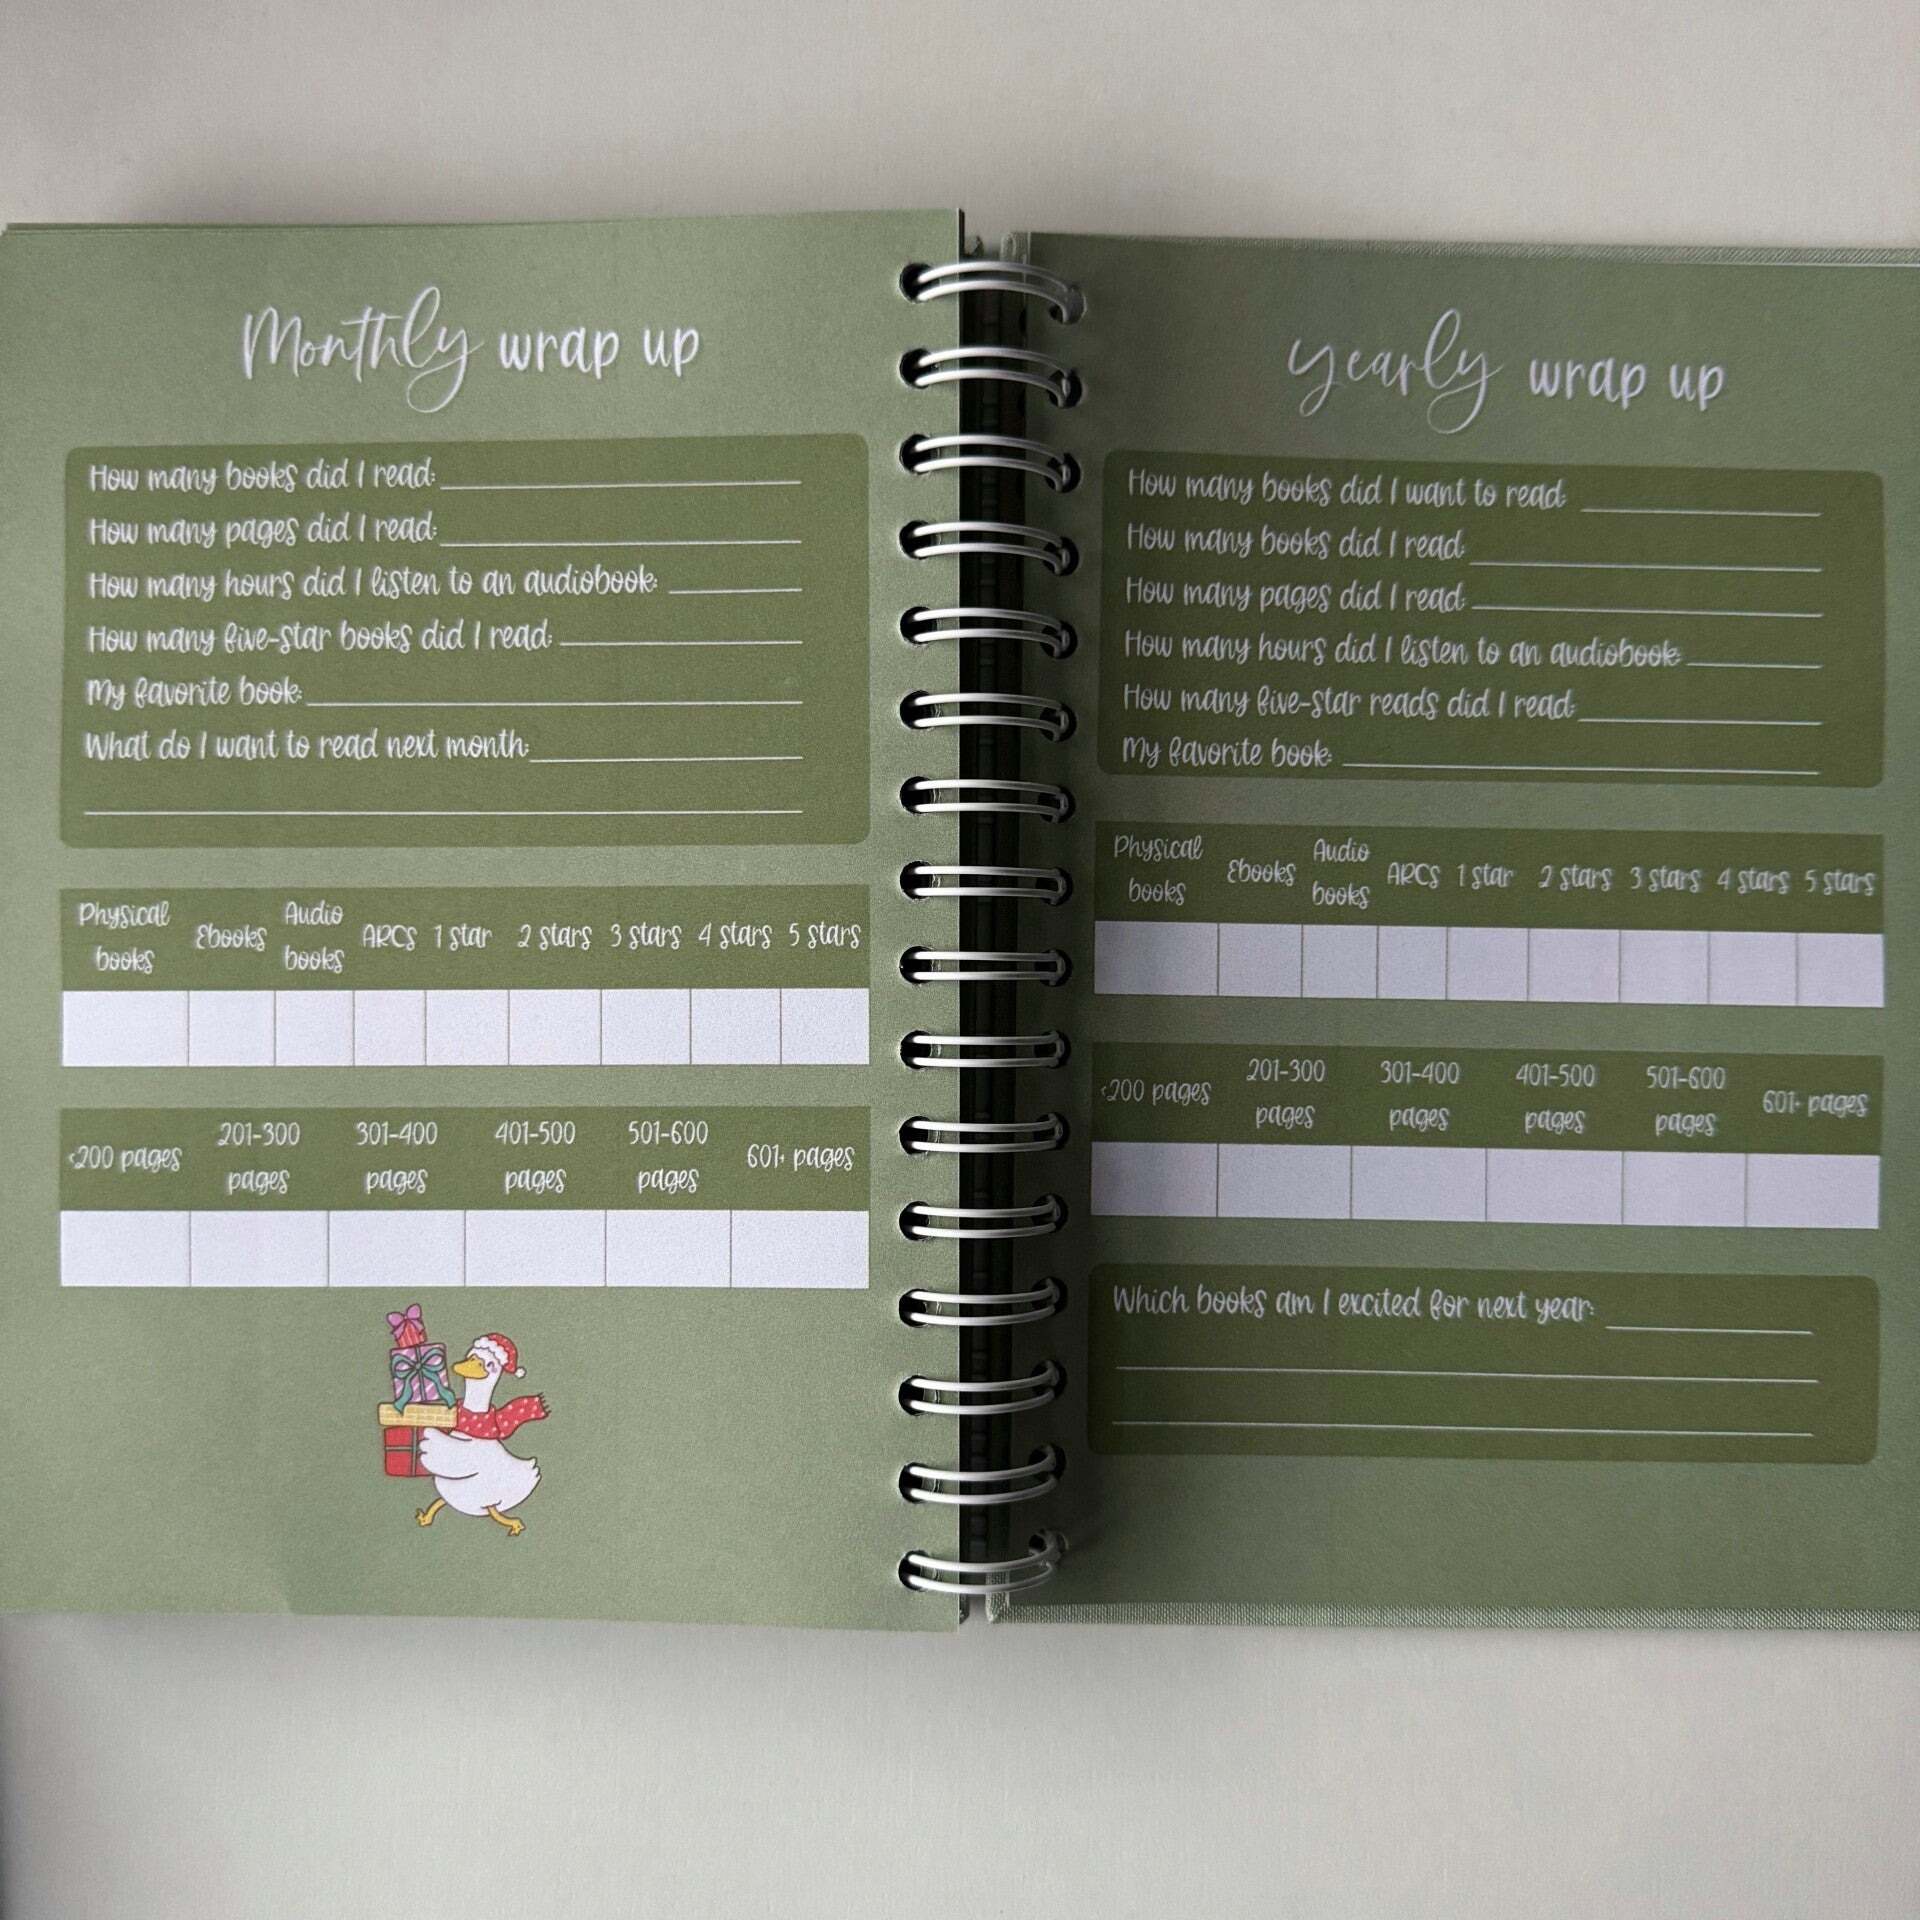 Monthly wrap up
How many books did I read:
How many pages did I read:
How many hours did I listen to an audiobook:
How many five-star books did I read:
My favorite book:
What do I want to read next month:
Physical books Ebooks Audio books ARCS 1 star 2 stars 3 stars 4 stars 5 stars
<200 pages 201-300 pages 301-400 pages 401-500 pages 501-600 pages 601+ pages
yearly wrap up
How many books did I want to read:
How many books did I read:
How many pages did I read:
How many hours did I listen to an audiobook:
How many five-star reads did I read:
My favorite book:
Physical books Ebooks Audio books ARCS 1 star 2 stars 3 stars 4 stars 5 stars
<200 pages 201-300 pages 301-400 pages 401-500 pages 501-600 pages 601+ pages
Which books am I excited for next year: